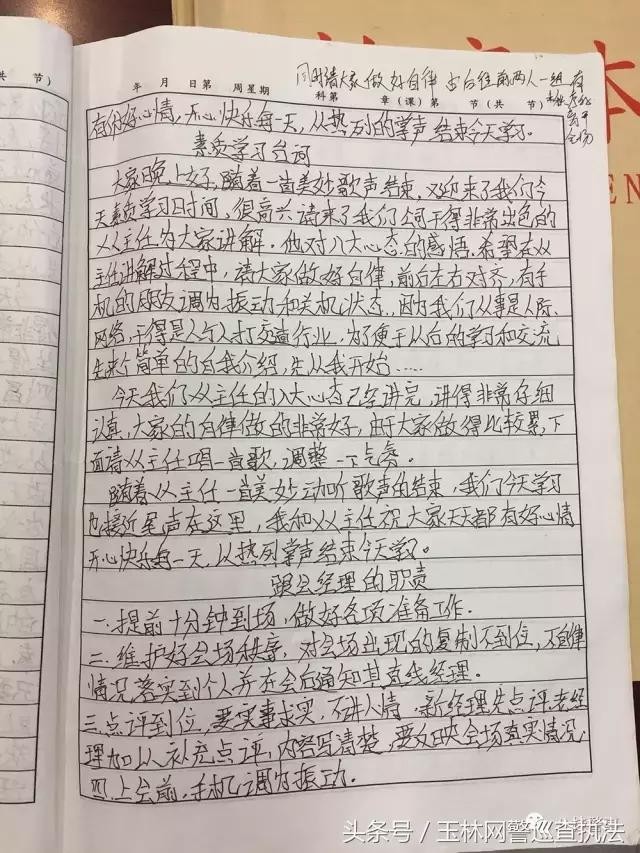 共 节)
本
年 月 日第 周星期 科第 章(课)第 节(共 节)
同时请大家做好自律 由后往前两人一组 有
离开
会场
有份好心情,开心快乐每一天,从热列的掌声结束今天学习。
素质学习台词
大家晚上好,随着一首美妙歌声结束,又迎来了我们今
天素质学习时间,很高兴请来了我们公司干得非常出色的
XX主任为大家讲解。他对八大心态的感悟。希望在XX
主任讲解过程中,请大家做好自律,前后左右对齐,有手
机的朋友调为振动和关机状态。因为我们从事是人际
网络,干得是人与人打交道行业,为了便于以后的学习和交流
先来个简单的自我介绍,先从我开始……
今天我们XX主任的八大心态已经讲完,讲得非常仔细
认真,大家的自律做的非常好,由于大家做得比较累,下
面请XX主任唱一首歌,调整一下气氛。
随着XX主任一首美妙动听歌声的结束,我们今天学习
也接近尾声在这里,我和XX主任祝大家天天都有好心情
开心快乐每一天,以热列掌声结束今天学习。
跟会经理的职责
一.提前十分钟到场,做好各项准备工作.
二.维护好会场秩序,对会场出现的复制不到位,不自律
情况落实到个人并在会后通知其直线经理。
三.点评到位,要实事求实,不讲人情,新经理先点评,老经
理加以补充点评,内容写清楚,要反映会场真实情况,
四.上会前,手机调为振动.
头条号/玉林网警巡查执法